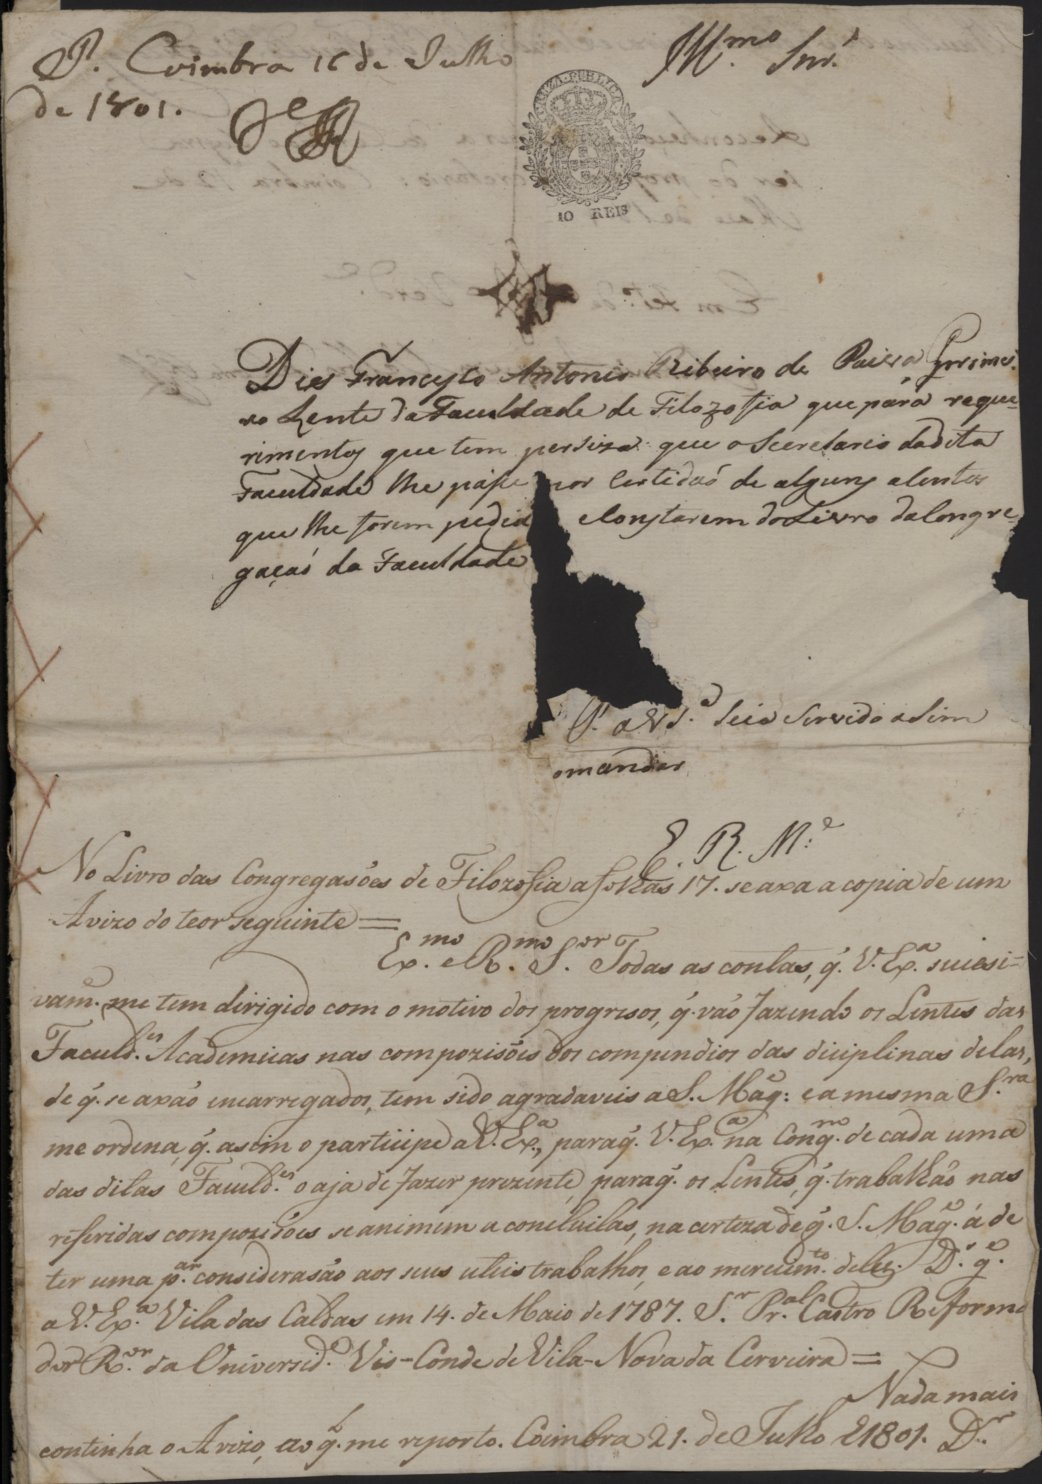 P. Coimbra 16 de Julho
de 1801.
Ill.mo Snr.
FAZENDA PUBLICA
10 REIS
Dis Francysco Antonio Ribeiro de Paiva Primei-
ro Lente da Faculdade de Filozofia que pará reque-
rimentos que tem perciza que o Secretario da dita
Faculdade lhe paſse por Certidaõ de alguns aſentos
que lhe forem pedid e Constarem do Livro da Congre
gaçaõ da Faculdade
P. a V S.a Seia Servido aSim
o mandar
E. R. M.e
No Livro das Congregasões de Filozofia a folhas 17. se axa a copia de um
Avizo do teor seguinte =
Ex.mo e R.mo S.or Todas as contas, q̃. V. Ex.a sucesi-
vam.e me tem dirigido com o motivo dos progresos, q̃. vaõ fazendo os Lentes das
Faculd.es Academicas nas compozisões dos compendios das diciplinas delas,
de q̃. se axaõ encarregados, tem sido agradaveis a S. Mag.e: e a mesma S.ra
me ordena, q̃. asim o participe a V. Ex.a, paraq̃. V. Ex.a na Cong.m de cada uma
das ditas Faculd.es o aja de fazer prezente, paraq̃. os Lentes, q̃. trabalhaõ nas
referidas compozisões se animem a concluilas, na certeza de q̃. S. Mag.e á de
ter uma p.ar considerasaõ aos seus uteis trabalhos, e ao merecim.to deles. D.s g.e
a V. Ex.a Vila das Caldas em 14. de Maio de 1787. S.r Pr.al Castro Reforma
dor R.or da Universid.e Vis-Conde de Vila-Nova da Cerveira =
Nada mais
continha o Avizo, ao q̃. me reporto. Coimbra 21. de Julho d 1801. D.r